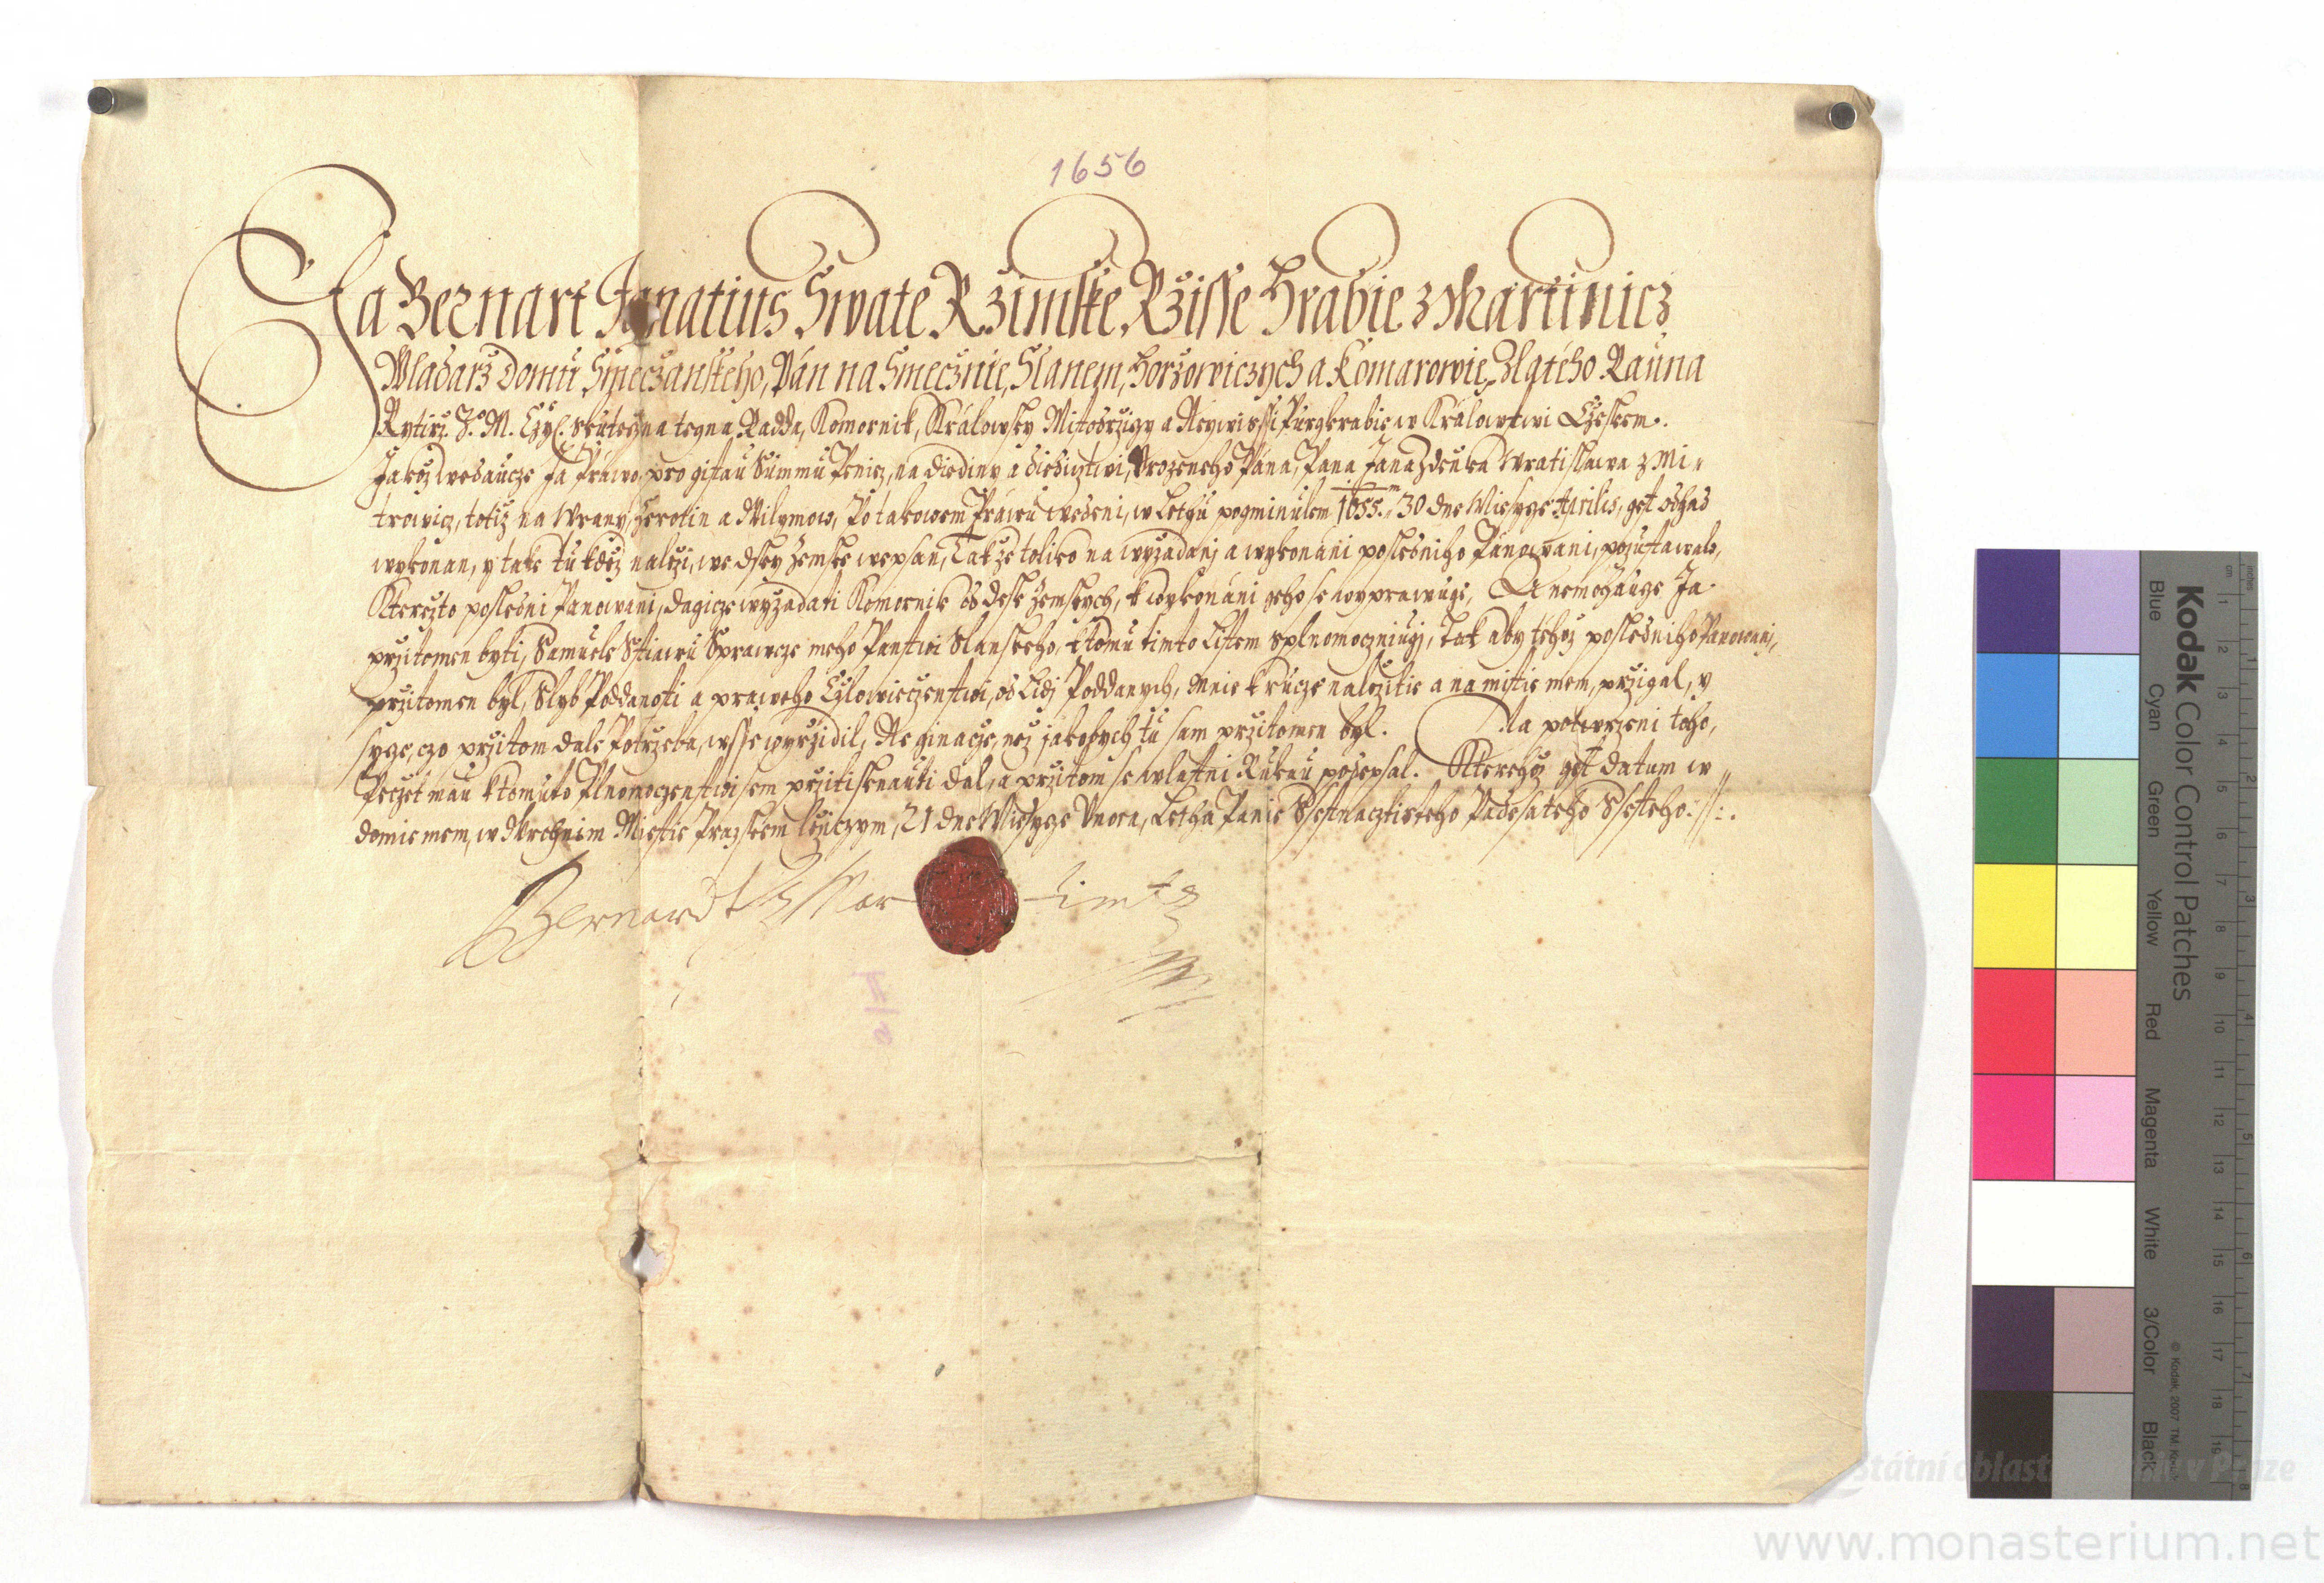 1656
Ja Bernart Ignatius Swate Rzimske Rzisse Hrabie z Martinicz
Wladarz Domu Smeczanskeho, Pán na Smecznie, Slanem, Horzowiczych a Komarowie, Zlatého Rauna
Rytirz. J. M. Czys. skuteczna tegna Radda, Komornik, Králowsky Mistodrzigy a Neywissi Purgkrabie w Králowstwi Czeskem.
Jakoz wedaucze Ja Práwo, pro gistau Summu Peniez, na diediny a diedicztwi, Urozeneho Pána, Pana Jana Zdenka Wratislawa z Mi-
trowicz, totiz na Wrany, Zerotin a Wilymow, Po takowem Práwu wedeni, w Lethu pogminulem 1655. 30 dne Miesyge Aprilis, gest odhad
wykonan, y take tu kdez nalezi, we dsky Zemske wepsan, Tak ze toliko na wyzadanj a wykonani posledniho Panowani, pozustawalo,
Kterezto posledni Panowani, dagicze wyzadati Komornik od desk Zemskych, k wykonáni geho se wyprawuge, A nemohauge Ja
przitomen byti, Samuele Stiawu Sprawcze meho Panstwi Slanskeho, k tomu timto Listem splnomoczniugj, Tak aby tehoz posledniho Panowanj,
przitomen byl, Slyb Poddanosti a praweho Czlowieczenstwi, od Lidj Poddanych, Mnie k rucze nalezitie a na mistie mem, przigal, y
syge, czo przitom dale Potrzeba, wsse wyrzidil, Ne ginacze, nez jakobych tu sam przitomen byl. Na potwrzeni toho,
Peczet mau k tomuto Plnomoczenstwi sem przitisknauti dal, a przitom se wlastni Rukau podepsal. Kterehoz gest datum w
domie mem, w Wrchnim Miestie Prazskem leziczym, 21 dne Miesyge Unora, Letha Panie Ssestnacztisteho Padesateho Ssesteho.
Bernardt z Mar-
tinitz
Kodak Color Control Patches
Blue Cyan Green Yellow Red Magenta White 3/Color Black
© Kodak, 2007 TM: Kodak
cm 1 2 3 4 5 6 7 8 9 10 11 12 13 14 15 16 17 18 19
inches 1 2 3 4 5 6 7 8
Státní oblastní archiv v Praze
www.monasterium.net